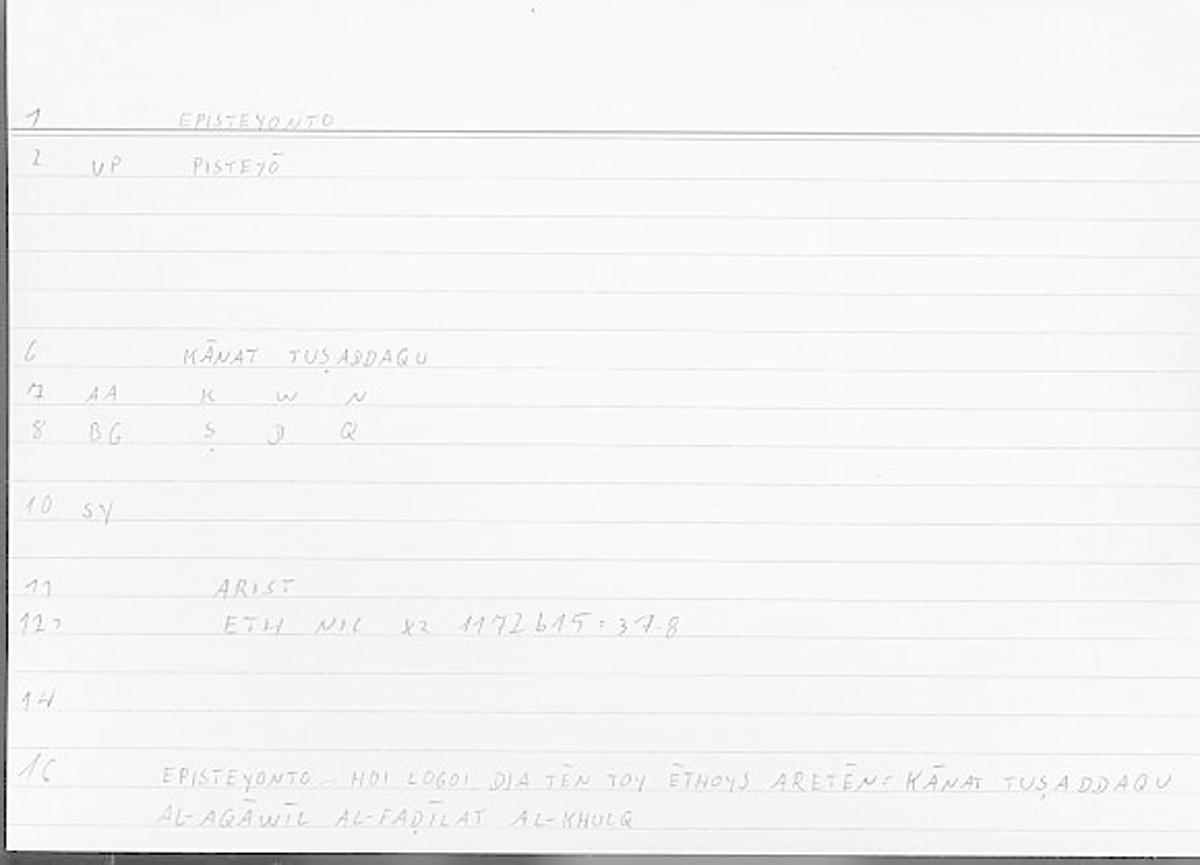 1 EPISTEYONTO
2 VP PISTEYŌ
6 KĀNAT TUṢADDAQU
7 AA K W N
8 BG Ṣ D Q
10 SY
11 ARIST
ETH NIC X2 1172b15 = 37.8
14
16 EPISTEYONTO HOI LOGOI DIA TĒN TOY ĒTHOYS ARETĒN = KĀNAT TUṢADDAQU
AL-AQĀWĪL AL-FAḌĪLAT AL-KHULQ